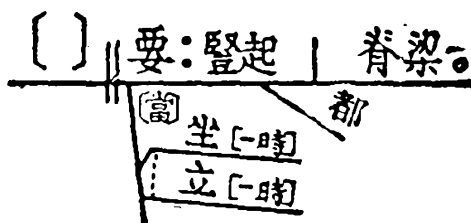 〔 〕 要：豎起 脊梁。
〔當〕 都
坐 [一時]
立 [一時]